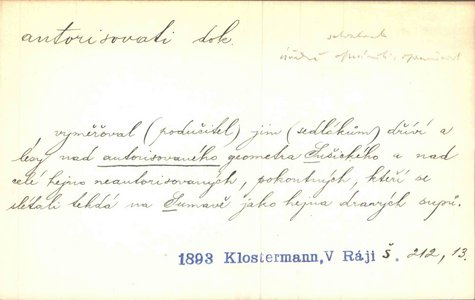 autorisovati dok.
úředně
, vyměřoval (podučitel) jim (sedlákům) dříví a
lesy nad autorisovaného geometra Sušického a nad
celé hejno neautorisovaných, pokoutných, kteří se
slétali tehdá na Šumavě jako hejna dravých supů.
1893 Klostermann, V Ráji š. 212, 13.